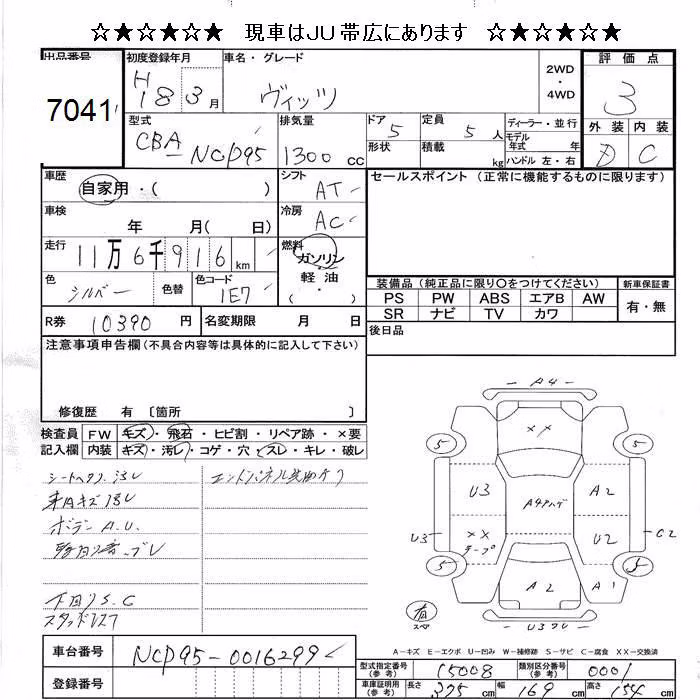 ☆★☆★☆★ 現車はJU帯広にあります ☆★☆★☆★
出品番号 初度登録年月 車名・グレード 2WD・4WD 評価点
7041 H18 3月 ヴィッツ 3
型式 排気量 ドア 定員 ディーラー・並行 外装 内装
CBA-NCP95 1300 cc 5 5 人 モデル年式 年 D C
形状 積載 kg ハンドル 左・右
車歴 自家用・( ) シフト AT セールスポイント (正常に機能するものに限ります)
車検 年 月( 日) 冷房 AC
走行 11万6千916 km 燃料 ガソリン 軽油 ( ・ )
色 シルバー 色替 色コード 1E7
装備品(純正品に限り〇をつけてください) 新車保証書
PS PW ABS エアB AW 有・無
SR ナビ TV カワ
R券 10390 円 名変期限 月 日 後日品
注意事項申告欄(不具合内容等は具体的に記入して下さい)
修復歴 有 〔箇所 〕
検査員 FW キズ・飛石・ヒビ割・リペア跡・×要
記入欄 内装 キズ・汚レ・コゲ・穴・スレ・キレ・破レ
ボデー A.U.
下回りS.C
スタッドレス
A4
××
5 5
U3 A2
U3 ×× U2 C2
A2 A1
5 5
有
A-キズ E-エクボ U-凹み W-補修跡 S-サビ C-腐食 XX-交換済
車台番号 NCP95-0016299
型式指定番号(参考) 15008 類別区分番号(参考) 0001
登録番号
車庫証明用(参考) 長さ 375 cm 幅 169 cm 高さ 154 cm